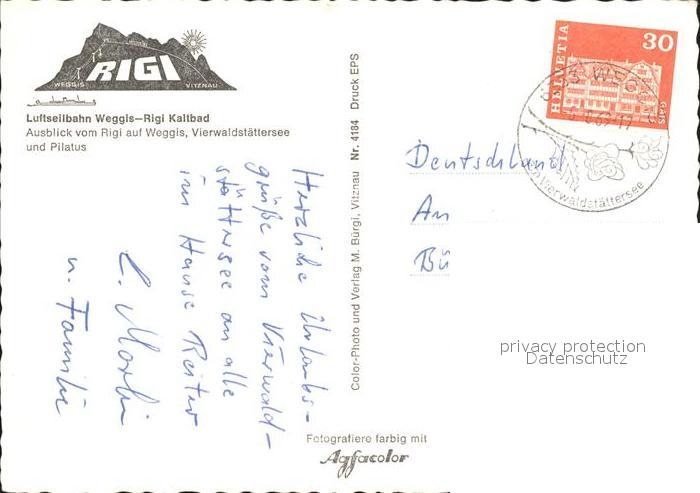 RIGI
WEGGIS
VITZNAU
Luftseilbahn Weggis—Rigi Kaltbad
Ausblick vom Rigi auf Weggis, Vierwaldstättersee
und Pilatus
Herzliche Urlaubs-
grüße vom Vierwald-
stättersee an alle
im Hause Reiter
u. Familie
Color-Photo und Verlag M. Bürgi, Vitznau Nr. 4184 Druck EPS
Fotografiere farbig mit
Agfacolor
HELVETIA
30
GAIS
WEGGIS
Vierwaldstättersee
Deutschland
An
Bü
privacy protection
Datenschutz